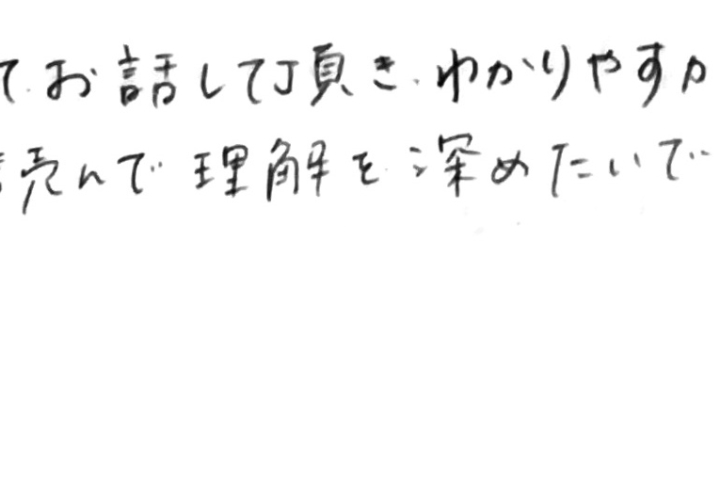 てお話して頂き、わかりやすか
読んで理解を深めたいで